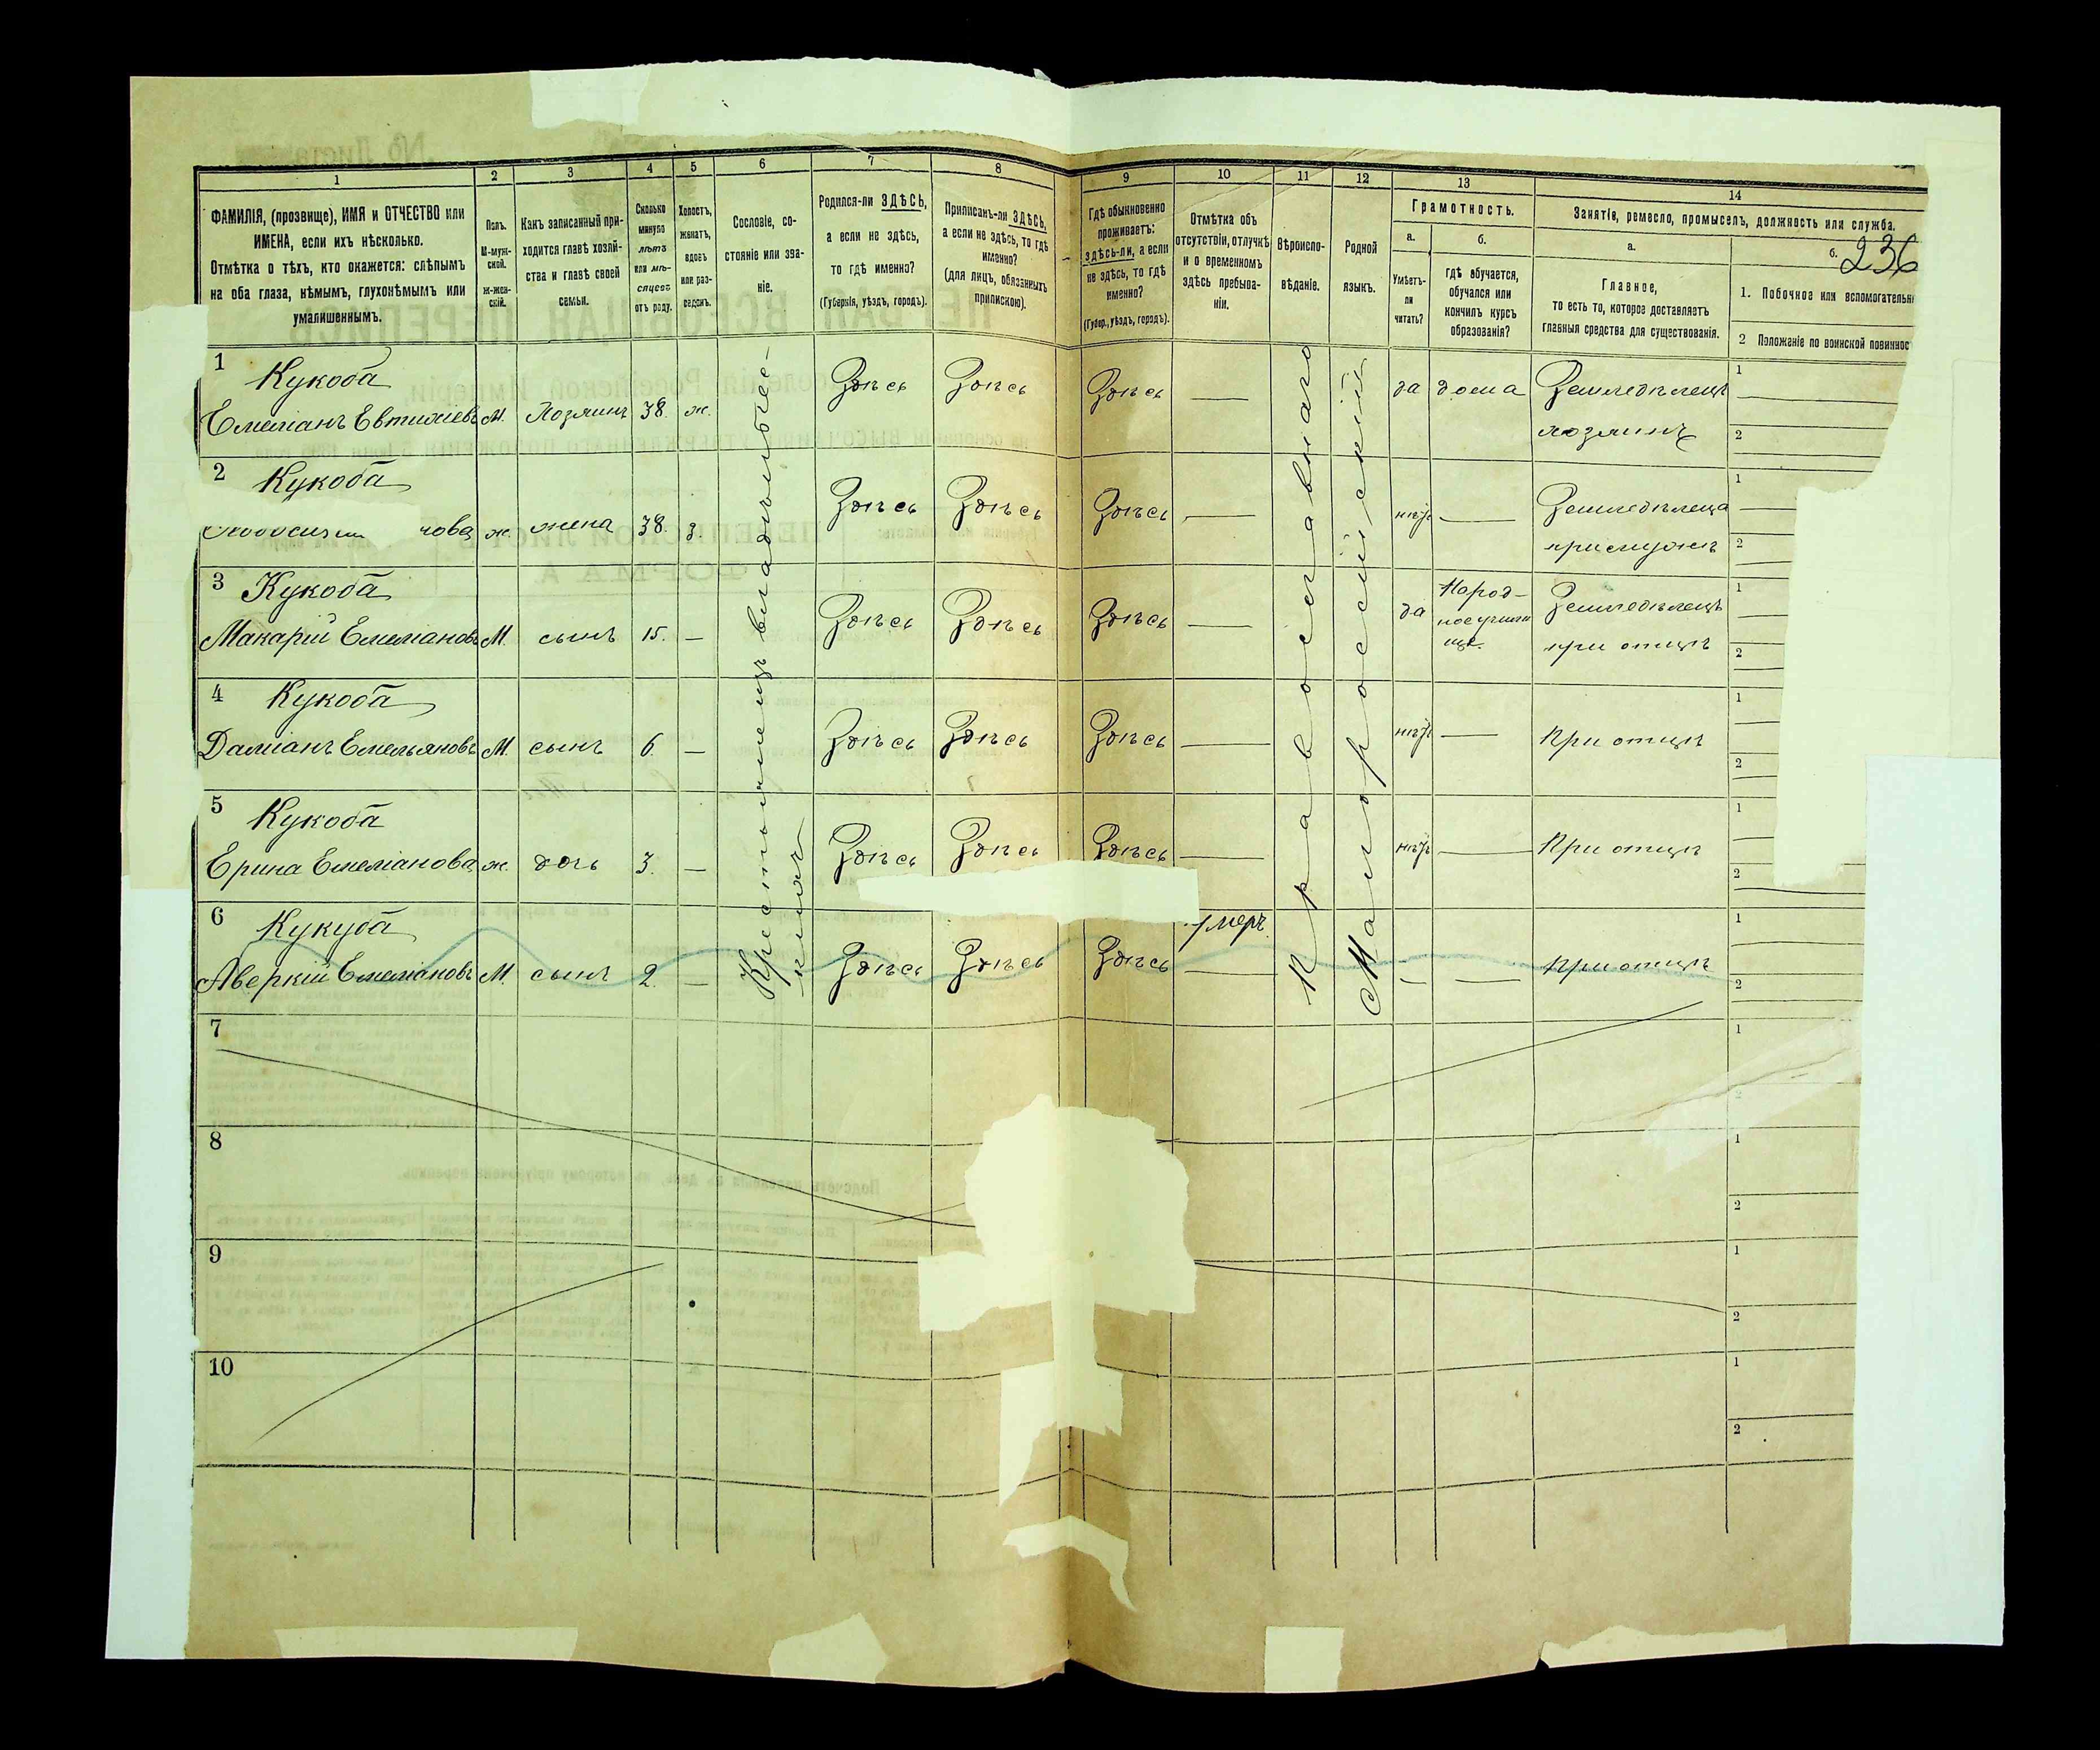 1 2 3 4 5 6 7 8 9 10 11 12 13 14
ФАМИЛІЯ, (прозвище), ИМЯ и ОТЧЕСТВО или
ИМЕНА, если ихъ нѣсколько.
Отмѣтка о тѣхъ, кто окажется: слѣпымъ
на оба глаза, нѣмымъ, глухонѣмымъ или
умалишеннымъ.
Полъ.
М-муж-
ской.
Ж-жен-
скій.
Какъ записанный при-
ходится главѣ хозяй-
ства и главѣ своей
семьи.
Сколько
минуло
лѣтъ
или мѣ-
сяцевъ
отъ роду.
Холостъ,
женатъ,
вдовъ
или раз-
веденъ.
Сословіе, со-
стояніе или зва-
ніе.
Родился-ли ЗДѢСЬ,
а если не здѣсь,
то гдѣ именно?
(Губернія, уѣздъ, городъ).
Приписанъ-ли ЗДѢСЬ,
а если не здѣсь, то гдѣ
именно?
(для лицъ, обязанныхъ
припискою).
Гдѣ обыкновенно
проживаетъ:
здѣсь-ли, а если
не здѣсь, то гдѣ
именно?
(Губер., уѣздъ, городъ).
Отмѣтка объ
отсутствіи, отлучкѣ
и о временномъ
здѣсь пребыва-
ніи.
Вѣроиспо-
вѣданіе.
Родной
языкъ.
Грамотность.
а.
Умѣетъ-
ли
читать?
б.
Гдѣ обучается,
обучался или
кончилъ курсъ
образованія?
Занятіе, ремесло, промыселъ, должность или служба.
а.
Главное,
то есть то, которое доставляетъ
главныя средства для существованія.
б.
236
1. Побочное или вспомогательн
2 Положеніе по воинской повиннос
Крестьянинъ владѣлъ
Православнаго
Малороссійскій
1 Кукоба
Емеліанъ Евтихіевъ М. Хозяинъ 38. ж. Здѣсь Здѣсь Здѣсь — да дома Земледѣлецъ
хозяинъ
1
2
2 Кукоба
чова ж. жена 38. з. Здѣсь Здѣсь Здѣсь — нѣтъ — Земледѣлеца
при мужѣ
1
2
3 Кукоба
Макарій Емеліановъ М. сынъ 15. — Здѣсь Здѣсь Здѣсь — да Народ-
ное училищѣ Земледѣлецъ
при отцѣ
1
2
4 Кукоба
Даміанъ Емельяновъ М. сынъ 6. — Здѣсь Здѣсь Здѣсь — нѣтъ — При отцѣ
1
2
5 Кукоба
Ерина Емеліанова ж. дочь 3. — Здѣсь Здѣсь Здѣсь — нѣтъ — При отцѣ
1
2
6 Кукуба
Аверкій Емеліановъ М. сынъ 2. — Здѣсь Здѣсь Здѣсь — — — При отцѣ
1
2
7
1
2
8
1
2
9
1
2
10
1
2